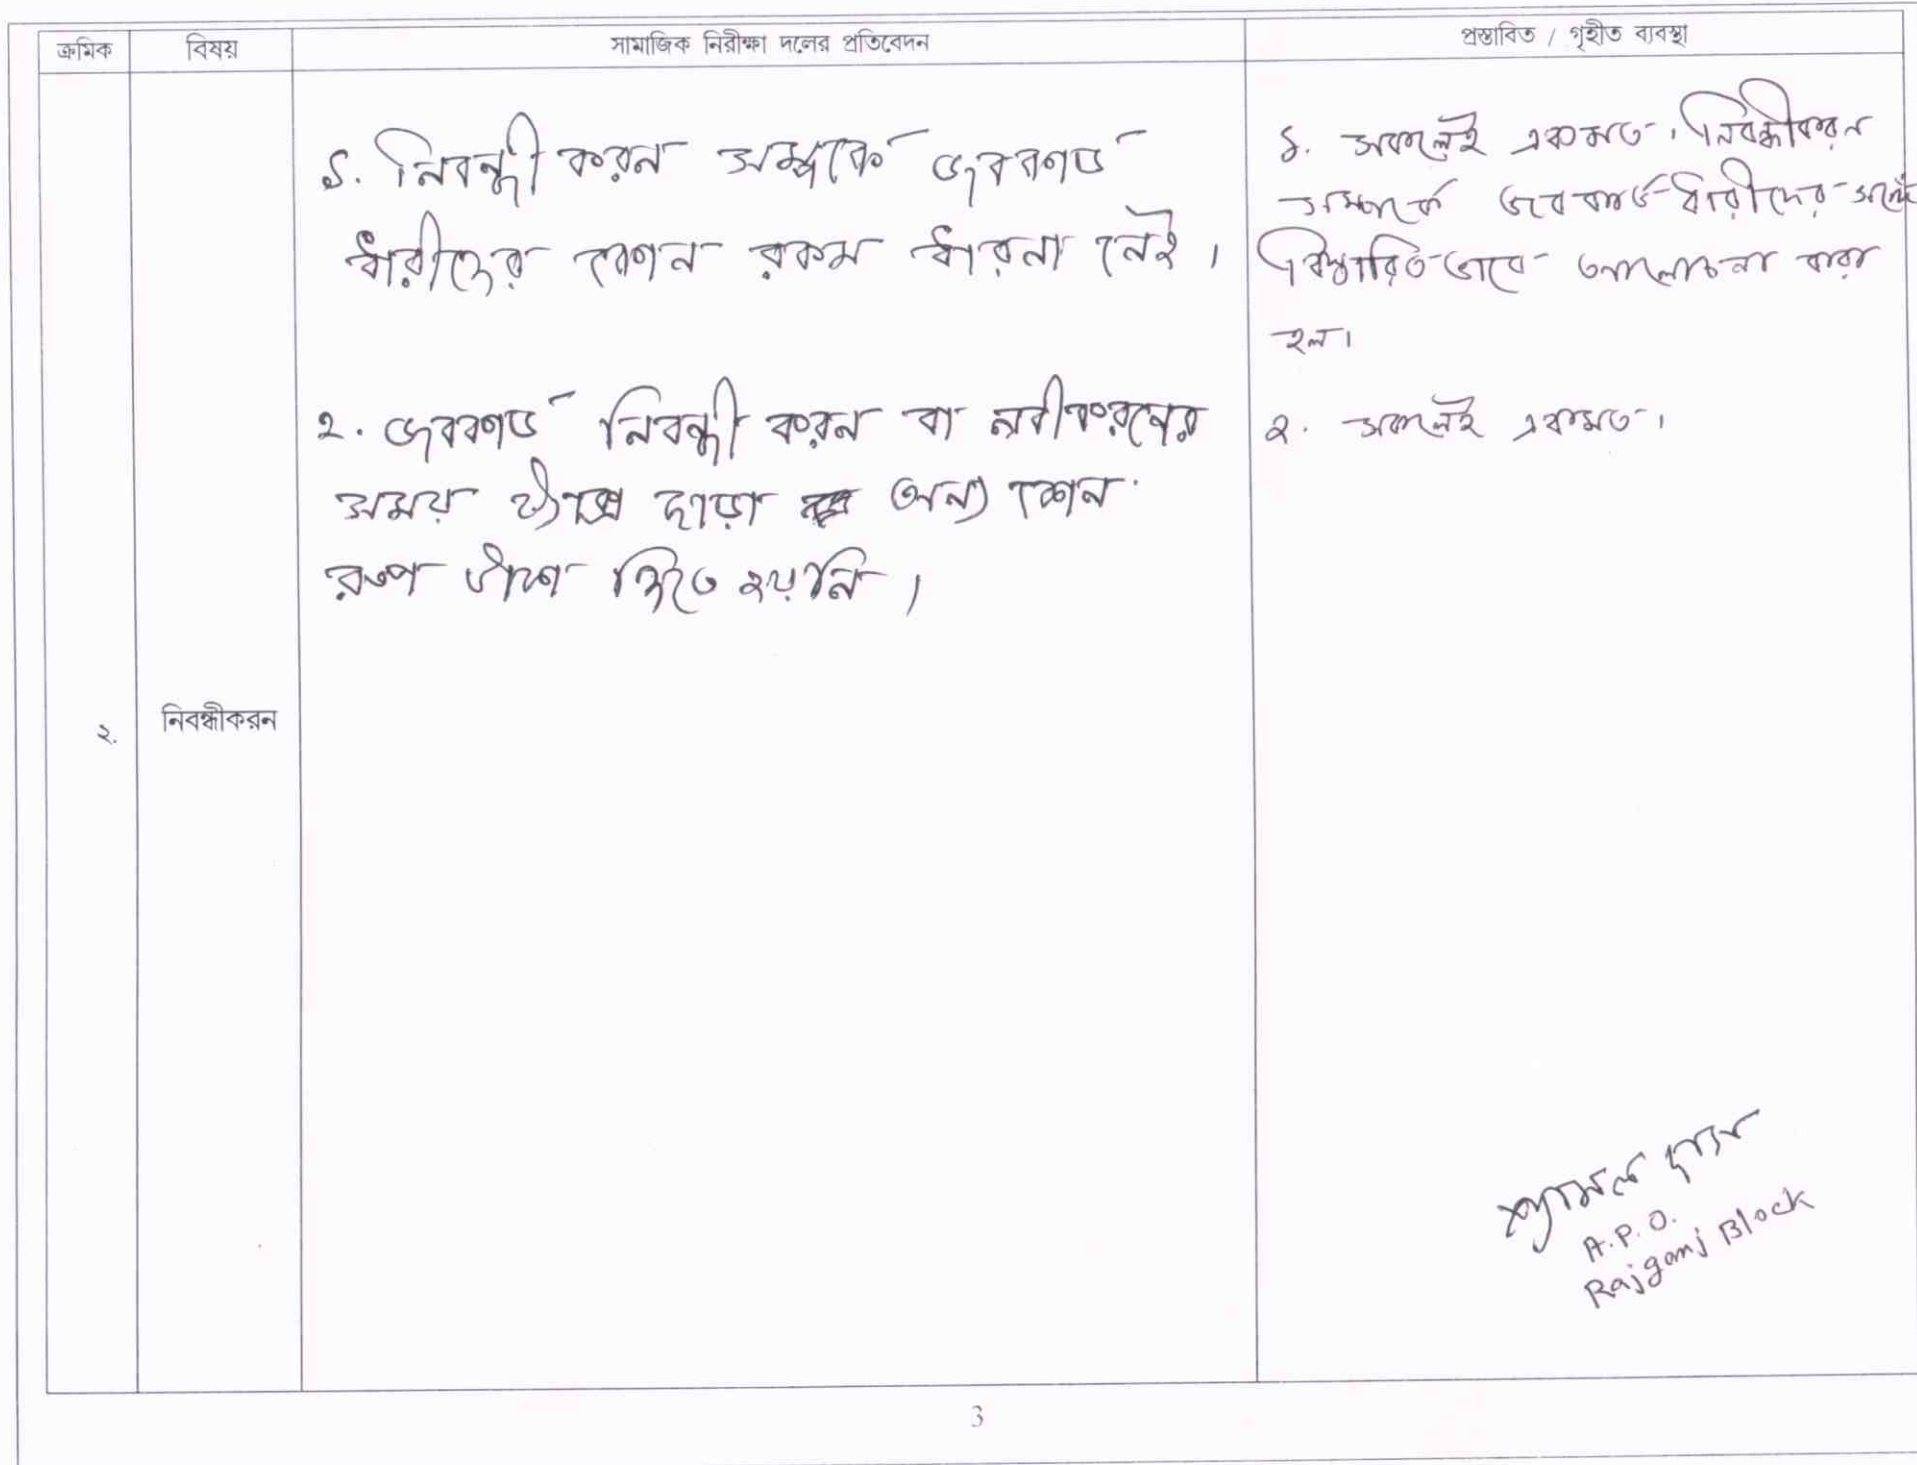 ক্রমিক
বিষয়
সামাজিক নিরীক্ষা দলের প্রতিবেদন
প্রস্তাবিত / গৃহীত ব্যবস্থা
১. নিবন্ধীকরন সম্পর্কে জবকার্ড
ধারীদের কোন রকম ধারনা নেই।
২. জবকার্ড নিবন্ধীকরন বা নবীকরনের
সময় ছাড়া অন্য কোন
রূপ টাকা দিতে হয়নি।
১. সকলেই একমত। নিবন্ধীকরন
সম্পর্কে জবকার্ডধারীদের সঙ্গে
বিস্তারিতভাবে আলোচনা করা
হল।
২. সকলেই একমত।
২.
নিবন্ধীকরন
শ্যামল দাস
A.P.O.
Rajganj Block
3